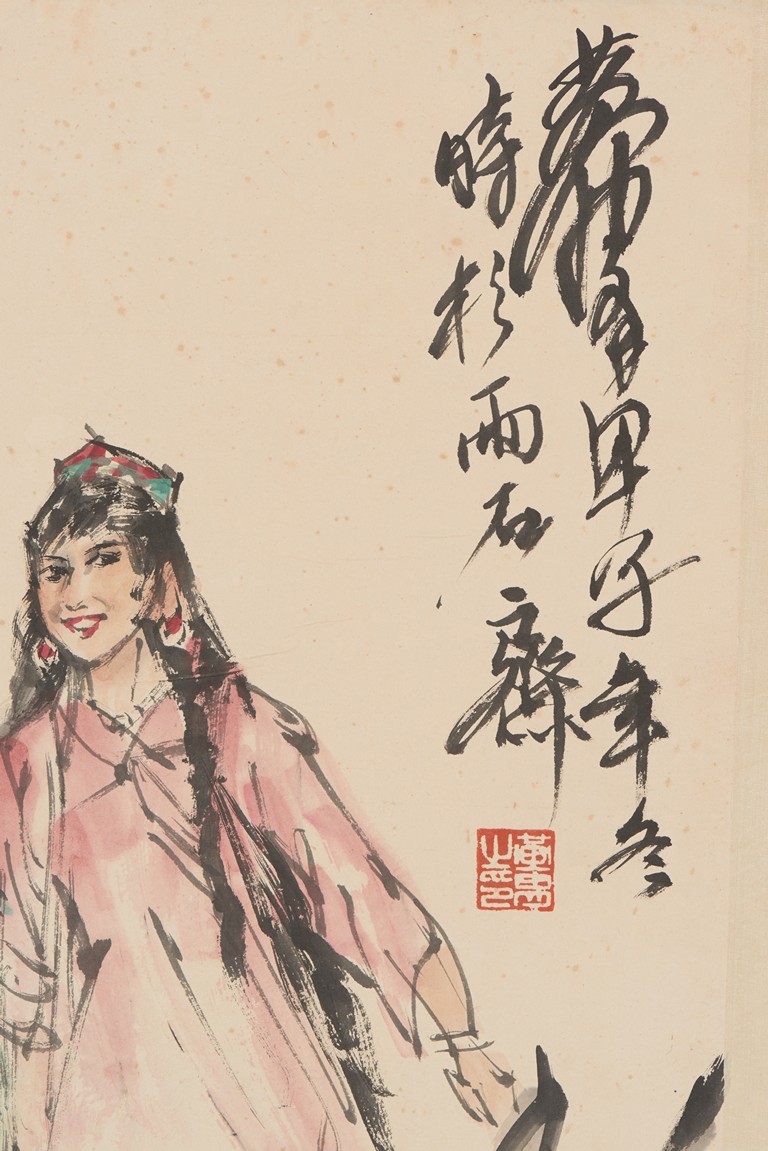 黄胄甲子年冬
時於雨石齋
黄胄之印